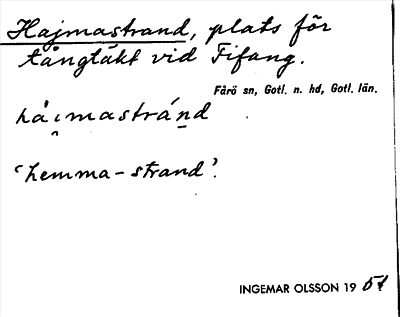 Hajmastrand, plats för
tångtäkt vid Fifang.
Fårö sn, Gotl. n. hd, Gotl. län.
hå̯ımastránd
'hemma-strand'.
INGEMAR OLSSON 19 51